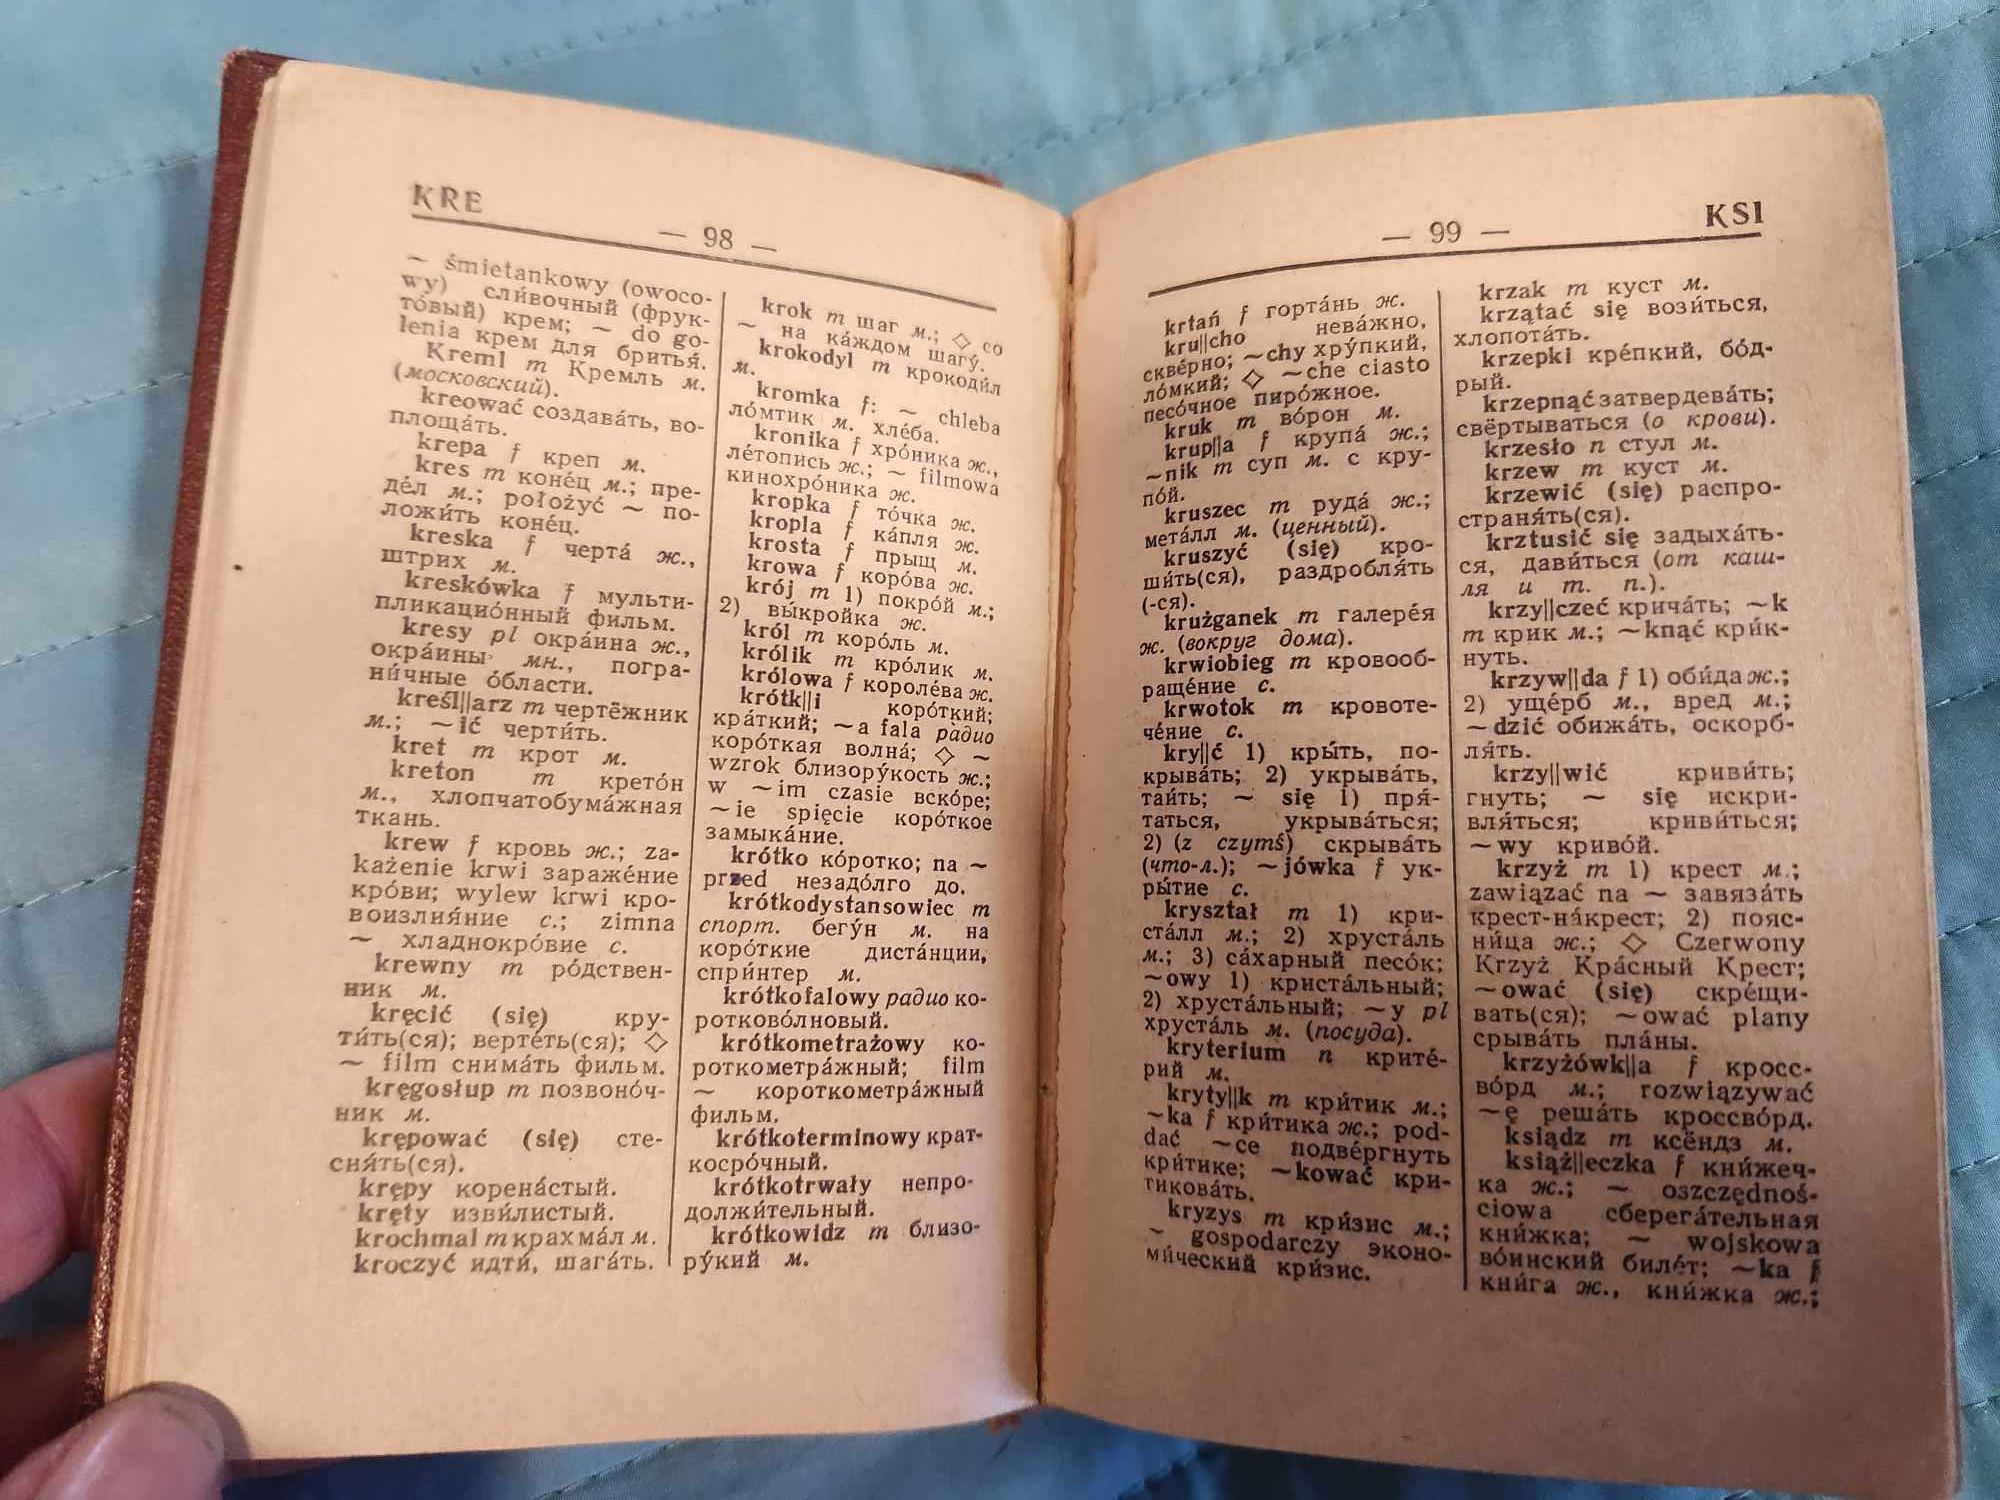 KRE
— 98 —
~ śmietankowy (owoco-
wy) сли́вочный (фрук-
то́вый) крем; ~ do go-
lenia крем для бритья́.
Kreml m Кремль м.
(московский).
kreować создава́ть, во-
площа́ть.
krepa f креп м.
kres m коне́ц м.; пре-
де́л м.; położyć ~ по-
ложи́ть коне́ц.
kreska f черта́ ж.,
штрих м.
kreskówka f мульти-
пликацио́нный фильм.
kresy pl окра́ина ж.,
окра́ины мн., погра-
ни́чные о́бласти.
kreśl||arz m чертёжник
м.; ~ić черти́ть.
kret m крот м.
kreton m крето́н
м., хлопчатобума́жная
ткань.
krew f кровь ж.; za-
każenie krwi зараже́ние
кро́ви; wylew krwi кро-
воизлия́ние с.; zimna
~ хладнокро́вие с.
krewny m ро́дствен-
ник м.
kręcić (się) кру-
ти́ть(ся); верте́ть(ся); ◇
~ film снима́ть фильм.
kręgosłup m позвоно́ч-
ник м.
krępować (się) сте-
сня́ть(ся).
krępy корена́стый.
kręty изви́листый.
krochmal m крахма́л м.
kroczyć идти́, шага́ть.
krok m шаг м.; ◇ co
~ на ка́ждом шагу́.
krokodyl m крокоди́л
м.
kromka f: ~ chleba
ло́мтик м. хле́ба.
kronika f хро́ника ж.,
ле́топись ж.; ~ filmowa
кинохро́ника ж.
kropka f то́чка ж.
kropla f ка́пля ж.
krosta f прыщ м.
krowa f коро́ва ж.
krój m 1) покро́й м.;
2) вы́кройка ж.
król m коро́ль м.
królik m кро́лик м.
królowa f короле́ва ж.
krótk||i коро́ткий;
кра́ткий; ~a fala радио
коро́ткая волна́; ◇ ~
wzrok близору́кость ж.;
w ~im czasie вско́ре;
~ie spięcie коро́ткое
замыка́ние.
krótko ко́ротко; na ~
przed незадо́лго до.
krótkodystansowiec m
спорт. бегу́н м. на
коро́ткие диста́нции,
спри́нтер м.
krótkofalowy радио ко-
ротково́лновый.
krótkometrażowy ко-
роткометра́жный; film
~ короткометра́жный
фильм.
krótkoterminowy крат-
косро́чный.
krótkotrwały непро-
должи́тельный.
krótkowidz m близо-
ру́кий м.
— 99 —
KSI
krtań f горта́нь ж.
kru||cho нева́жно,
скве́рно; ~chy хру́пкий,
ло́мкий; ◇ ~che ciasto
песо́чное пиро́жное.
kruk m во́рон м.
krup||a f крупа́ ж.;
~nik m суп м. с кру-
по́й.
kruszec m руда́ ж.;
мета́лл м. (ценный).
kruszyć (się) кро-
ши́ть(ся), раздробля́ть
(-ся).
krużganek m галере́я
ж. (вокруг дома).
krwiobieg m кровооб-
раще́ние с.
krwotok m кровоте-
че́ние с.
kry||ć 1) кры́ть, по-
крыва́ть; 2) укрыва́ть,
таи́ть; ~ się 1) пря́-
таться, укрыва́ться;
2) (z czymś) скрыва́ть
(что-л.); ~jówka f ук-
ры́тие с.
kryształ m 1) кри-
ста́лл м.; 2) хруста́ль
м.; 3) са́харный песо́к;
~owy 1) криста́льный;
2) хруста́льный; ~y pl
хруста́ль м. (посуда).
kryterium n крите́-
рий м.
kryty||k m кри́тик м.;
~ka f кри́тика ж.; pod-
dać ~ce подве́ргнуть
кри́тике; ~kować кри-
тикова́ть.
kryzys m кри́зис м.;
~ gospodarczy эконо-
ми́ческий кри́зис.
krzak m куст м.
krzątać się вози́ться,
хлопота́ть.
krzepki кре́пкий, бо́д-
рый.
krzepnąć затвердева́ть;
свёртываться (о крови).
krzesło n стул м.
krzew m куст м.
krzewić (się) распро-
страня́ть(ся).
krztusić się задыха́ть-
ся, дави́ться (от каш-
ля и т. п.).
krzy||czeć крича́ть; ~k
m крик м.; ~knąć кри́к-
нуть.
krzyw||da f 1) оби́да ж.;
2) уще́рб м., вред м.;
~dzić обижа́ть, оскорб-
ля́ть.
krzy||wić криви́ть;
гнуть; ~ się искри-
вля́ться; криви́ться;
~wy криво́й.
krzyż m 1) крест м.;
zawiązać na ~ завяза́ть
крест-на́крест; 2) пояс-
ни́ца ж.; ◇ Czerwony
Krzyż Кра́сный Крест;
~ować (się) скре́щи-
вать(ся); ~ować plany
срыва́ть пла́ны.
krzyżówk||a f кросс-
во́рд м.; rozwiązywać
~ę реша́ть кроссво́рд.
ksiądz m ксёндз м.
książ||eczka f кни́жеч-
ка ж.; ~ oszczędnoś-
ciowa сберега́тельная
кни́жка; ~ wojskowa
во́инский биле́т; ~ka f
кни́га ж., кни́жка ж.;